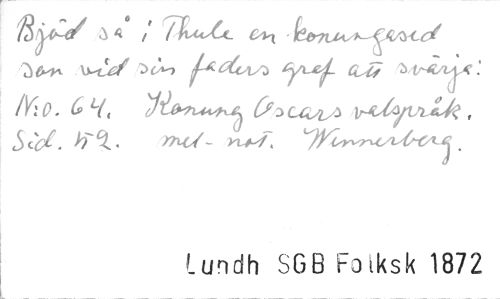 Bjöd så i Thule en konungased
son vid sin faders graf att svärja:
N:o. 64. Konung Oscars valspråk.
Sid. 52. mel-not. Wennerberg.
Lundh SGB Folksk 1872